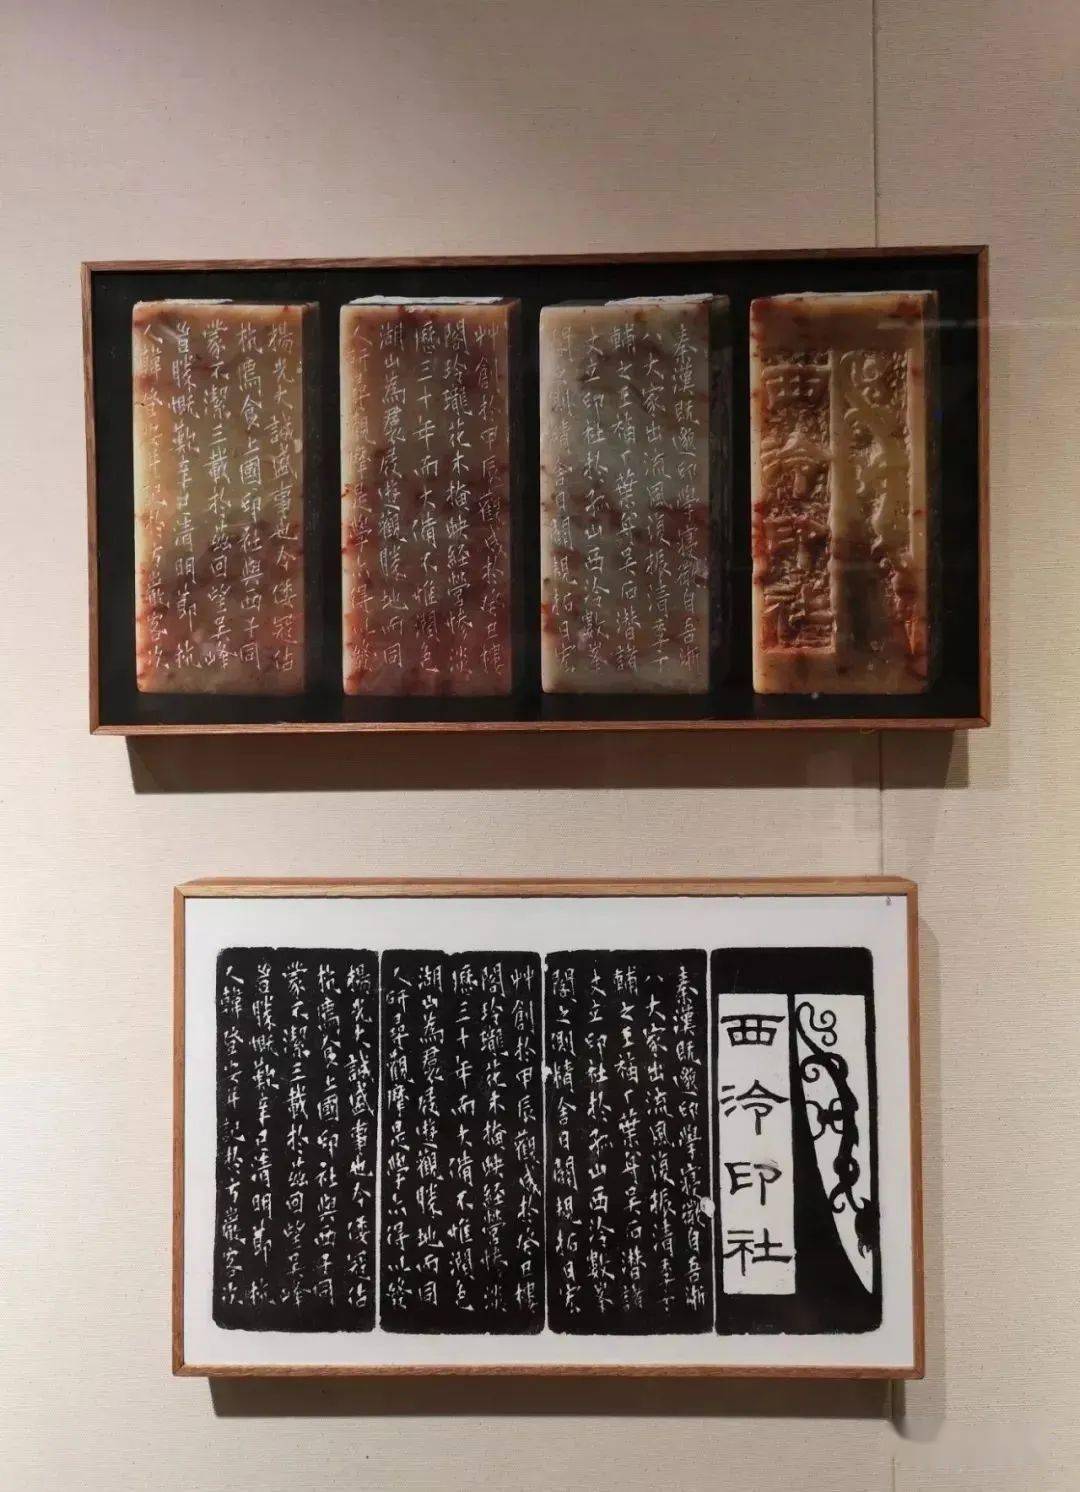 西泠印社
秦漢既邈印學寖微自吾浙
八大家出流風復振清季丁
輔之王福厂葉舟吳石潛諸
丈立印社於孤山西泠數峯
閣之側精舍日闢規拓日宏
艸創於甲辰觀成於癸丑樓
閣玲瓏花木掩映經營慘淡
歷三十年而大備不惟潤色
湖山為羣屐遊觀勝地而同
人研尋觀摩是學亦得以發
揚光大誠盛事也今倭寇佔
杭薦食上國印社與西子同
蒙不潔三載於茲回望吳峰
曷勝慨歎辛巳清明節杭
人韓登安并記於方巖客次
西泠印社
秦漢既邈印學寖微自吾浙
八大家出流風復振清季丁
輔之王福厂葉舟吳石潛諸
丈立印社於孤山西泠數峯
閣之側精舍日闢規拓日宏
艸創於甲辰觀成於癸丑樓
閣玲瓏花木掩映經營慘淡
歷三十年而大備不惟潤色
湖山為羣屐遊觀勝地而同
人研尋觀摩是學亦得以發
揚光大誠盛事也今倭寇佔
杭薦食上國印社與西子同
蒙不潔三載於茲回望吳峰
曷勝慨歎辛巳清明節杭
人韓登安并記於方巖客次